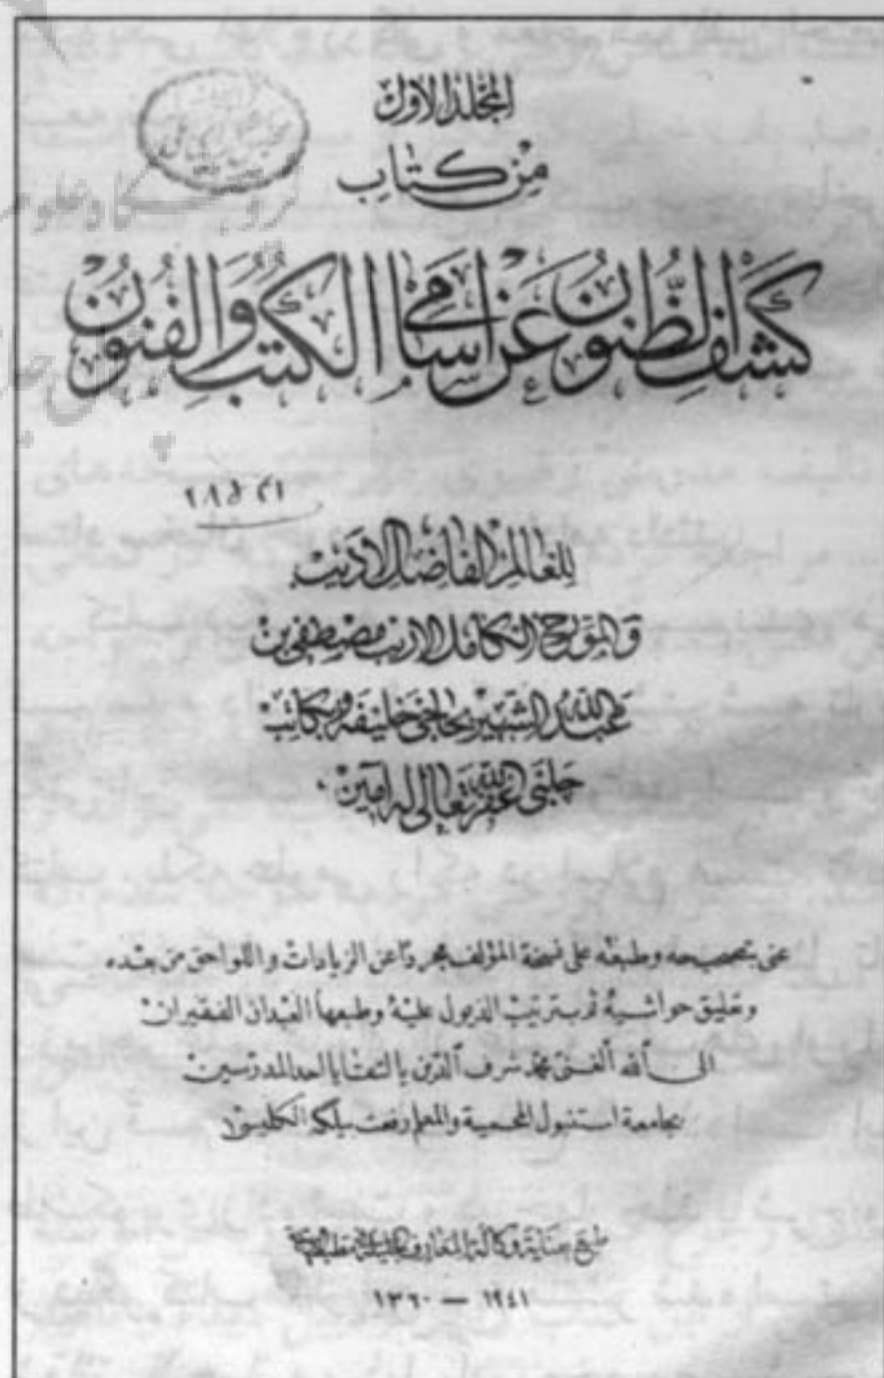 المجلد الاول
من كتاب
كشف الظنون عن اسامي الكتب والفنون
للعالم الفاضل الاديب
والمؤرخ الكامل الاريب مصطفى بن
عبد الله الشهير بحاجي خليفة وبكاتب
چلبي غفر الله تعالى له آمين
عنى بتصحيحه وطبعه على نسخة المؤلف مجردا عن الزيادات واللواحق من بعده
وتعليق حواشيه ثم بترتيب الذيول عليه وطبعها العبدان الفقيران
الى الله الغنى محمد شرف الدين يالتقايا احد المدرسين
بجامعة استنبول المحمية والمعلم رفعت بيلگه الكليسى
طبع بعناية وكالة المعارف الجليلة في مطبعتها البهية
١٩٤١ — ١٣٦٠